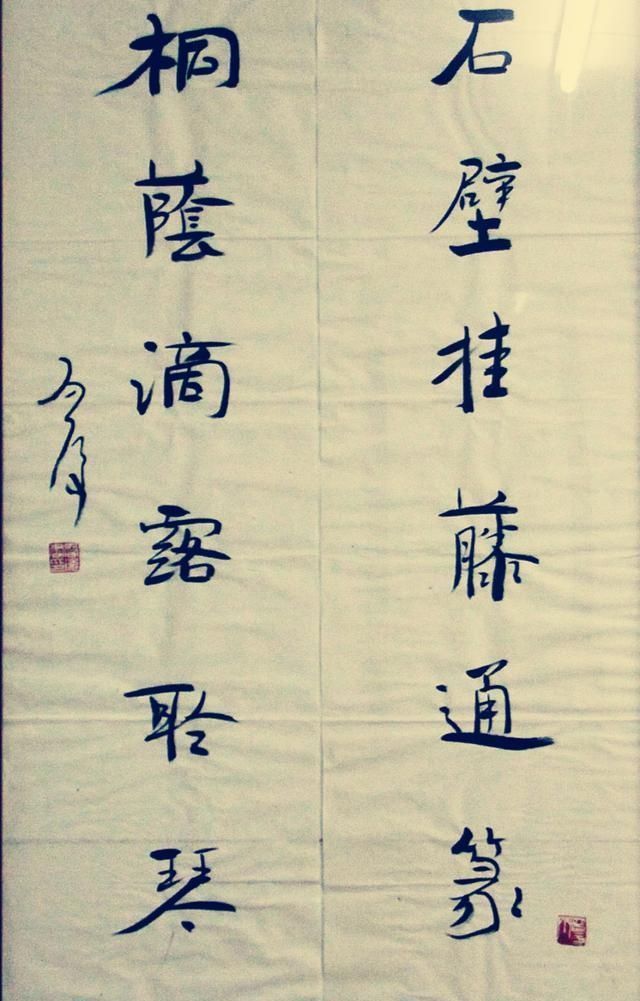 石壁挂藤通篆
桐蔭滴露聆琴